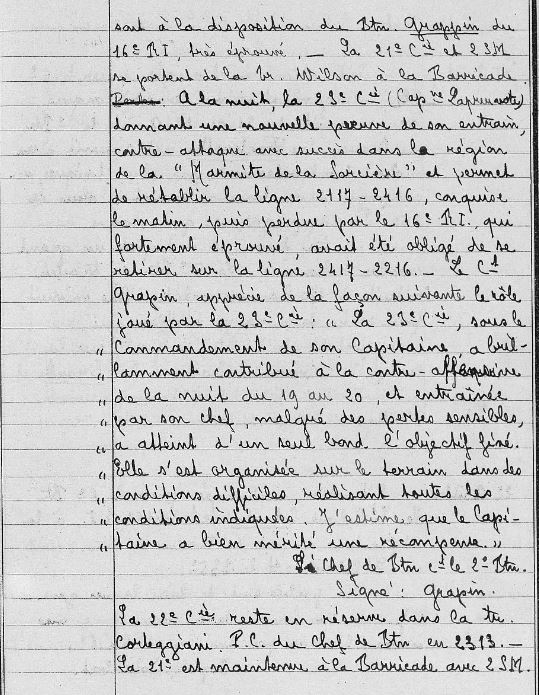 sont à la disposition du Btn. Grappin du
16e RI, très éprouvé, — La 21e Cie et 2 SM
se portent de la tr. Wilson à la Barricade
A la nuit, la 23e Cie (Capne
donnant une nouvelle preuve de son entrain,
contre-attaque avec succès dans la région
de la "Marmite de la Sorcière" et permet
de rétablir la ligne 2117-2416, conquise
le matin, puis perdue par le 16e RI. qui
fortement éprouvé, avait été obligé de se
retirer sur la ligne 2417-2216. — Le Ct
Grapin, apprécie de la façon suivante le rôle
joué par la 23e Cie: "La 23e Cie, sous le
" Commandement de son Capitaine, a bril-
" lamment contribué à la contre-offensive
" de la nuit du 19 au 20, et entraînée
" par son chef, malgré des pertes sensibles,
" a atteint d'un seul bond l'objectif fixé.
" Elle s'est organisée sur le terrain dans des
" conditions difficiles, réalisant toutes les
" conditions indiquées. J'estime que le Capi-
" taine a bien mérité une récompense."
Le Chef de Btn ct le 2e Btn.
Signé: Grapin.
La 22e Cie reste en réserve dans la tr.
Corteggiani. P.C. du Chef de Btn en 2313. —
La 21e est maintenue à la Barricade avec 2 SM.